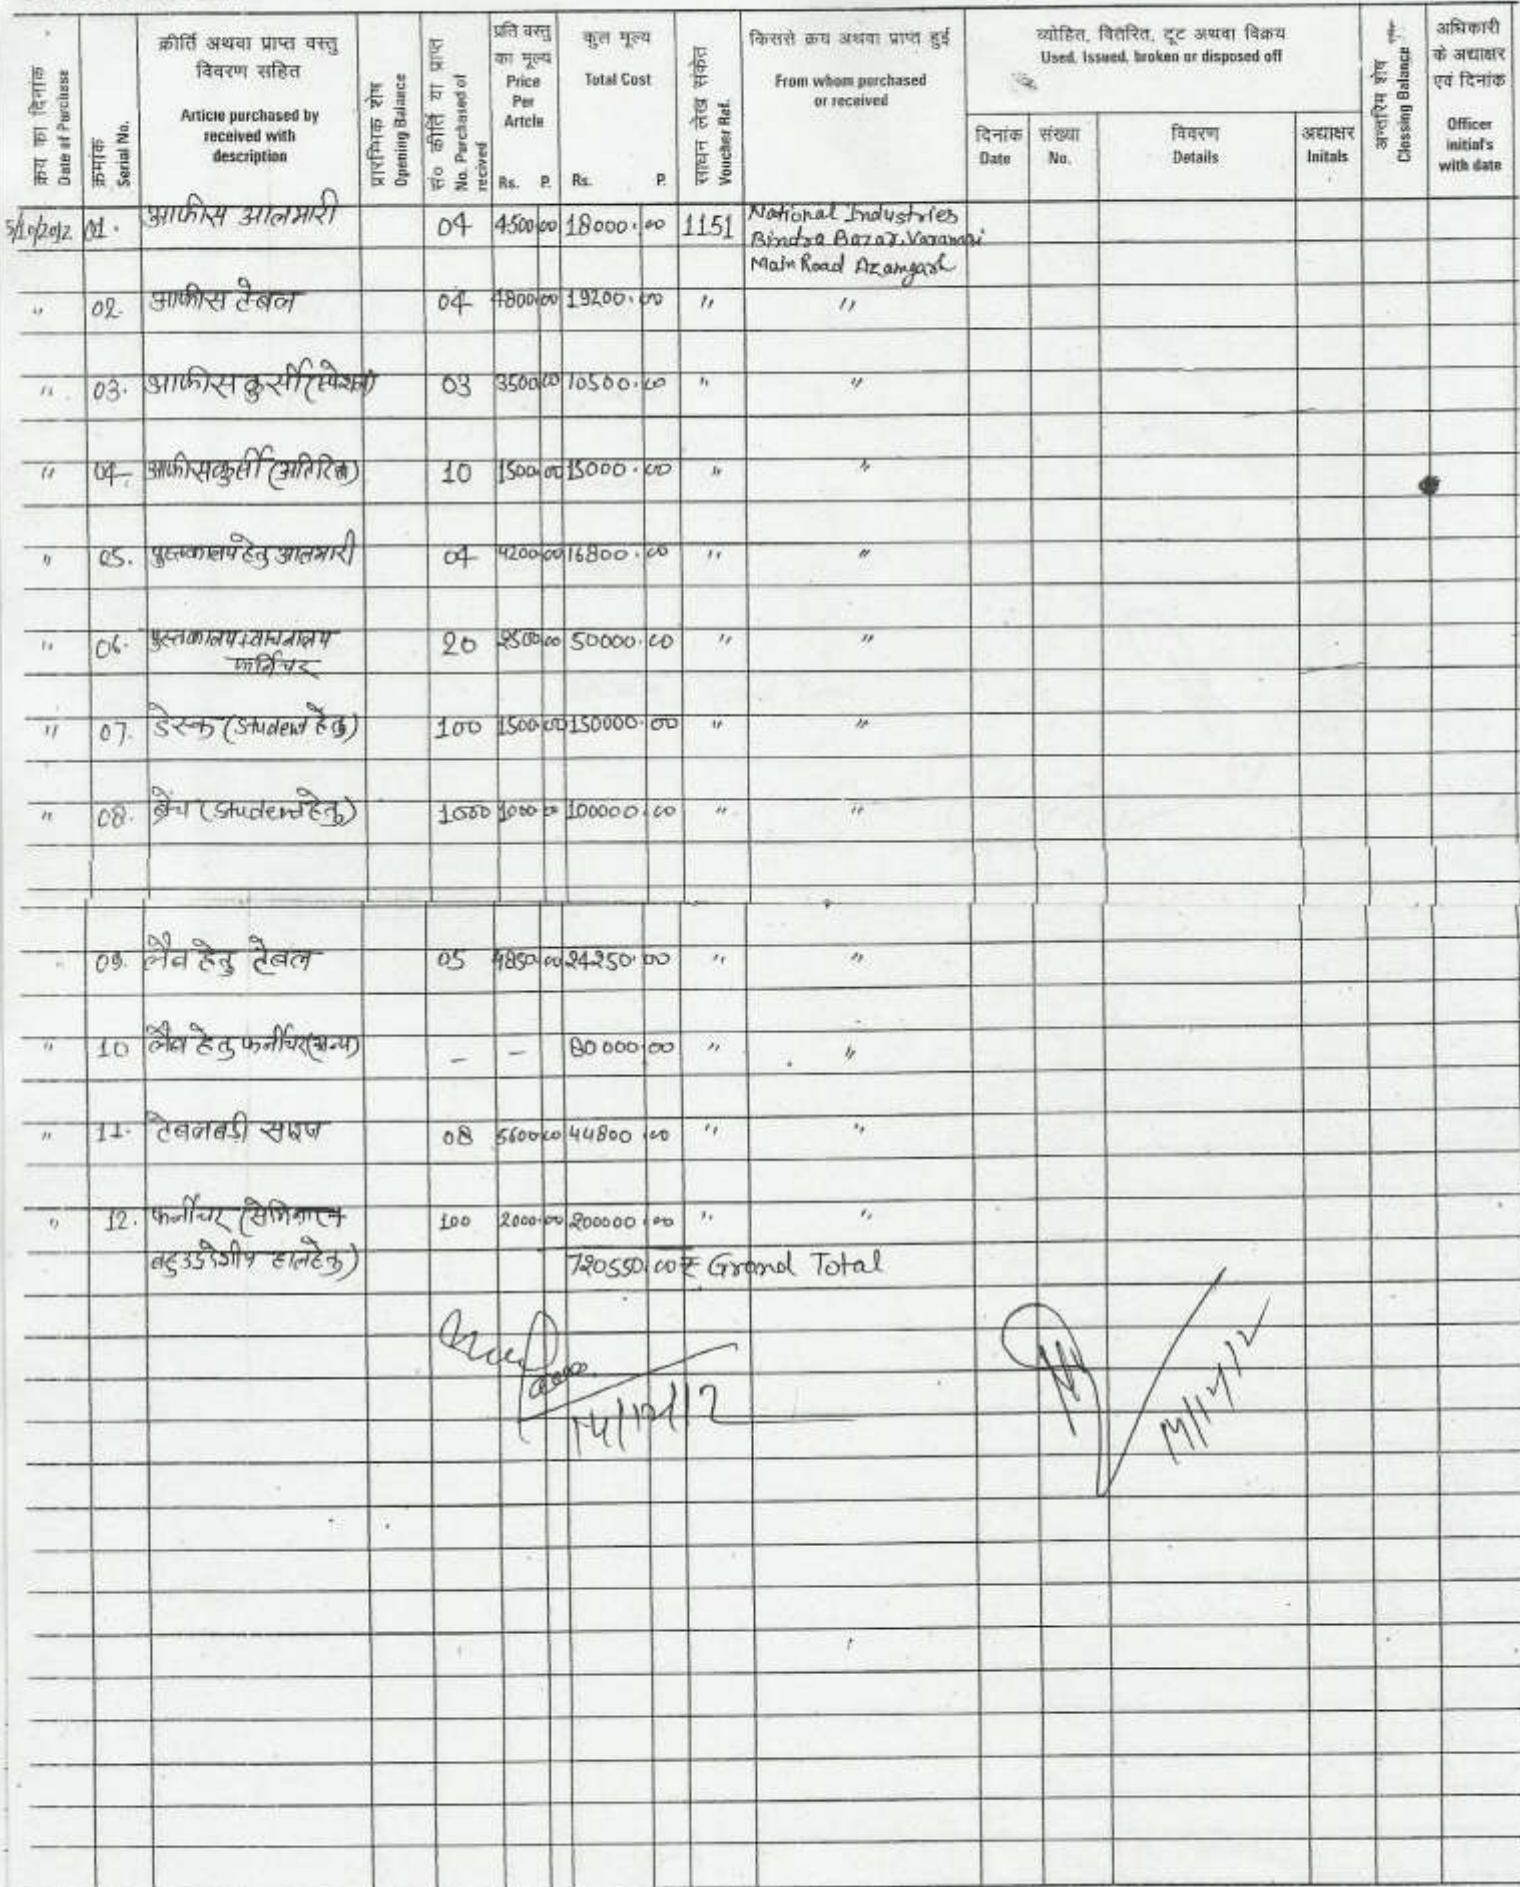 क्रय का दिनांक
Date of Purchase
क्रमांक
Serial No.
क्रीर्ति अथवा प्राप्त वस्तु
विवरण सहित
Article purchased by
received with
description
प्रारम्भिक शेष
Opening Balance
सं० कीर्ति या प्राप्त
No. Purchased of
received
प्रति वस्तु
का मूल्य
Price
Per
Artcle
Rs. P.
कुल मूल्य
Total Cost
Rs. P.
साधन लेख संकेत
Voucher Ref.
किससे क्रय अथवा प्राप्त हुई
From whom purchased
or received
व्योहित, वितेरित, टूट अथवा विक्रय
Used, Issued, broken or disposed off
दिनांक
Date
संख्या
No.
विवरण
Details
अद्याक्षर
Initals
अन्तरिम शेष
Clossing Balance
अधिकारी
के अद्याक्षर
एवं दिनांक
Officer
initial's
with date
5/10/2012 01. आफीस आलमारी 04 4500 00 18000.00 1151 National Industries
Bindra Bazar, Varanasi
Main Road Azamgarh
" 02. आफीस टेबल 04 4800 00 19200.00 " "
" 03. आफीस कुर्सी (स्पेशल) 03 3500 00 10500.00 " "
" 04- आफीस कुर्सी (अतिरिक्त) 10 1500 00 15000.00 " "
" 05. पुस्तकालय हेतु आलमारी 04 4200 00 16800.00 " "
" 06. पुस्तकालय+वाचनालय 20 2500 00 50000.00 " "
फर्निचर
" 07. डेस्क (Student हेतु) 100 1500 00 150000.00 " "
" 08. ब्रेंच (Student हेतु) 1000 1000 00 100000.00 " "
09. लैब हेतु टेबल 05 4850 00 24250.00 " "
" 10 लैब हेतु फर्नीचर (अन्य) — — 80000 00 " "
" 11. टेबल बडी साइज 08 5600 00 44800 00 " "
" 12. फर्नीचर (सेमिनार व 100 2000 00 200000 00 " "
बहुउद्देशीय हाल हेतु) 720550.00 ₹ Grand Total
14/12/12